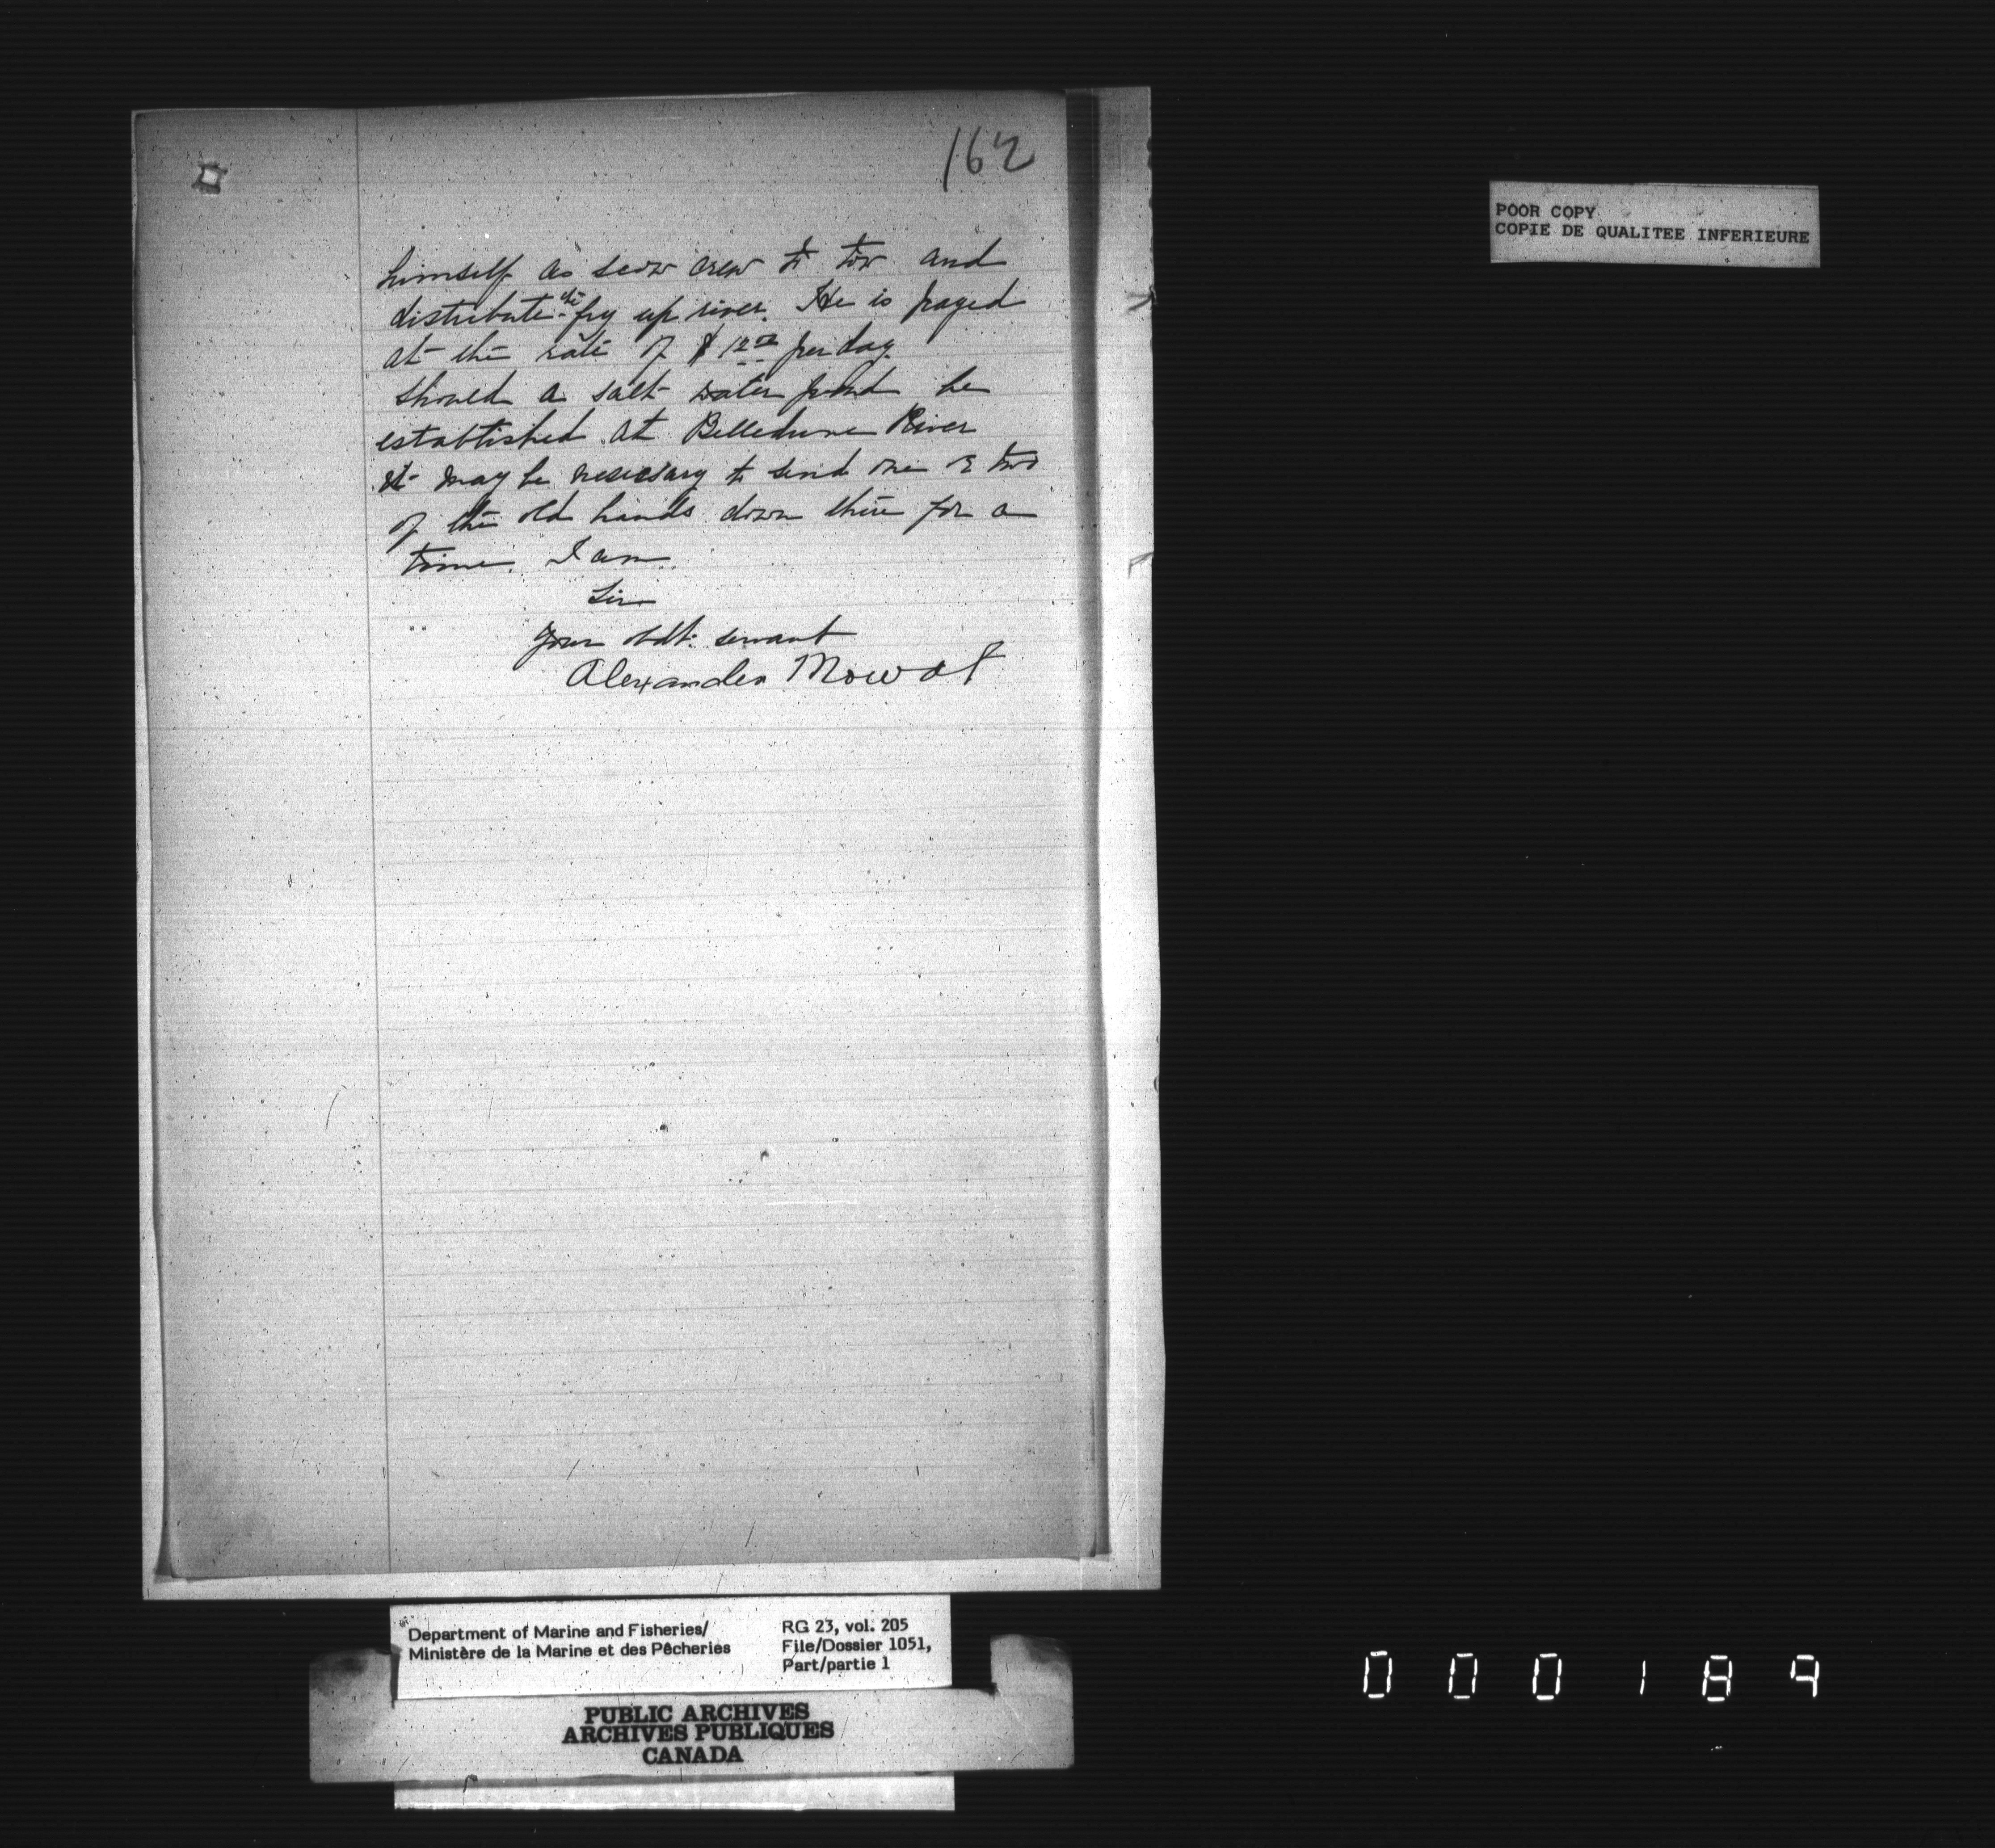 162
POOR COPY
COPIE DE QUALITEE INFERIEURE
himself as scow crew to tow and
distribute the fry up river. He is payed
at the rate of $ 1 per day.
Should a salt water pond be
established at Belledune River
it may be necessary to send one or two
of the old hands down there for a
time. I am
Sir
your obdt. servant
Alexander Mowat
Department of Marine and Fisheries/
Ministère de la Marine et des Pêcheries
RG 23, vol. 205
File/Dossier 1051,
Part/partie 1
PUBLIC ARCHIVES
ARCHIVES PUBLIQUES
CANADA
000189